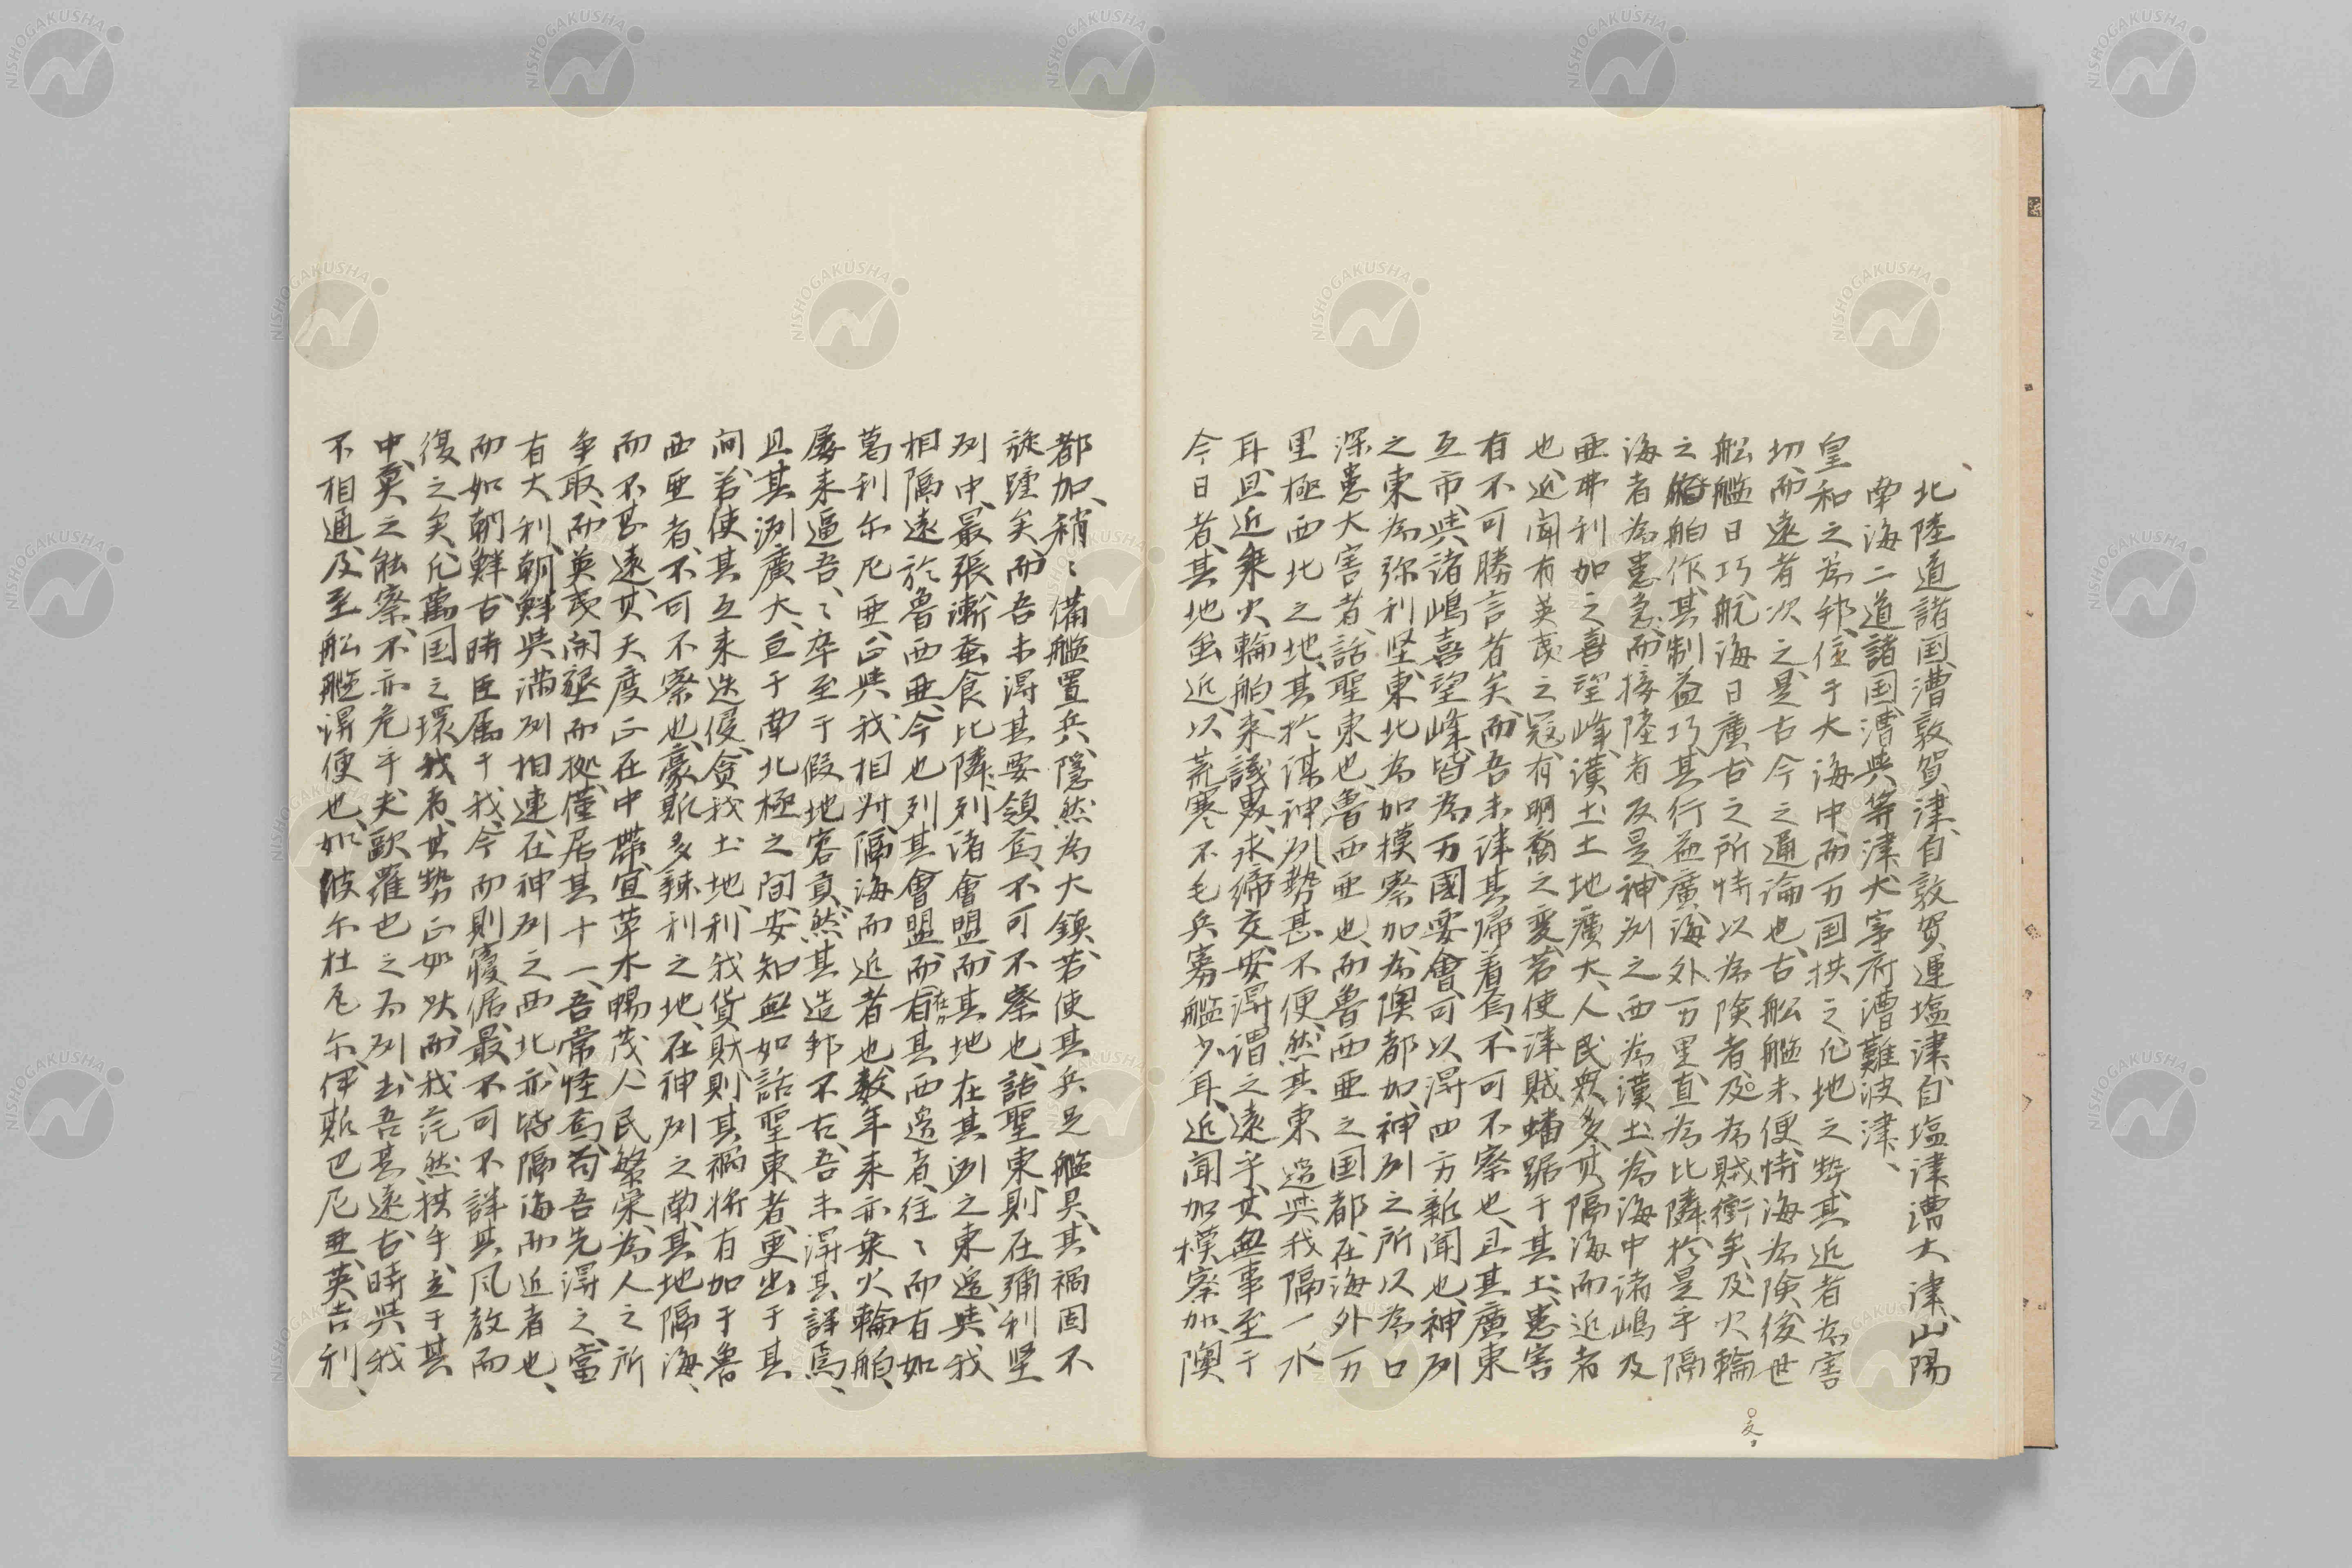 北陸道諸国漕敦賀津、自敦賀運塩津、自塩津漕大津、山陽
南海二道諸国漕與等津、大宰府漕難波津、
皇和之為邦、位于大海中、而万国拱之、凡地之勢、其近者為害
切、而遠者次之、是古今之通論也、古船艦未便、恃海為険、後世
船艦日巧、航海日廣、古之所恃以為険者、及為賊衝矣、及火輪
之舶作、其制益巧、其行益廣、海外万里直為比隣、於是乎隔
海者為患急、而接陸者反是、神州之西為漢土、為海中諸嶋及
亜弗利加之喜望峰、漢土土地廣大、人民衆多、其隔海而近者
也、近聞有英夷之冦、有明裔之変、若使洋賊蟠踞于其土、患害
有不可勝言者矣、而吾未津其帰着焉、不可不察也、且其廣東
互市、與諸嶋喜望峰、皆為万國要會、可以得西方新聞也、神州
之東為弥利堅、東北為加模察加、為隩都加、神州之所以為口
深患大害者、話聖東也、魯西亜也、而魯西亜之国都在海外万
里極西北之地、其於謀神州勢甚不便、然其東邊與我隔一水
耳、且近乗火輪舶、来議疆、求締交、安得謂之遠乎、其無事至于
今日者、其地虽近、以荒寒不毛兵寡艦少耳、近聞加模察加、隩
反
都加、稍〻備艦置兵、隠然為大鎮、若使其兵足艦具、其禍固不
旋踵矣、而吾未得其要領焉、不可不察也、話聖東則在彌利堅
州中、最張漸蚕食比隣、列諸會盟、而其地在其州之東邊、與我
相隔遠於魯西亜、今也列其會盟、而有在其西邊者、往〻而有如
葛利尓尼亜、正與我相対、隔海而近者也、数年来亦乗火輪舶、
屡来逼吾、〻卒至于假地容貢、然其造邦不古、吾未得其詳焉、
且其洌廣大、亘于南北極之間、安知無如話聖東者、更出于其
间、若使其互来迭侵、貪我土地、利我貨財、則其禍将有加于魯
西亜者、不可不察也、豪斯多辣利之地、在神州之南、其地隔海、
而不甚遠、其天度正在中帯、宜草木暢茂、人民繁栄、為人之所
争取、而英夷開墾而拠、僅居其十一、吾常怪焉、苟吾先得之、當
有大利、朝鮮與満州相連、在神州之西北、亦皆隔海而近者也、
而如朝鮮、古時臣属于我、今而則寝倨、最不可不詳其風教而
復之矣、凡萬国之環我者、其勢正如此、而我茫然拱手立于其
中、莫之能察、不亦危乎、夫歐羅也之為州、去吾甚遠、古時與我
不相通、及至船艦得便也、如彼尓杜尼尓、伊斯巴尼亜、英吉利、